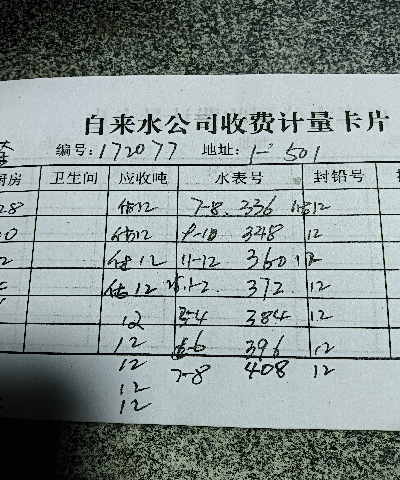 自来水公司收费计量卡片
编号:172077 地址:1-501
厨房 卫生间 应收吨 水表号 封铅号
28 估12 7-8 336 12
估12 9-10 348 12
2 估12 11-12 360 12
估12 1-2 372 12
12 3-4 384 12
12 5-6 396 12
12 7-8 408 12
12
12